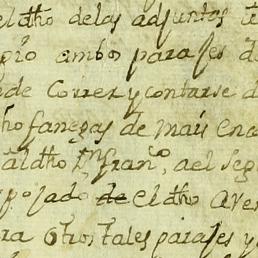 el dho delas adjuntas te
grō ambos parages d
nde Correr y contarse d
ho fanegas de mais en ca
al dho Dn Franco, a el seg
pojado de el dho Aven
ra otros tales parages y